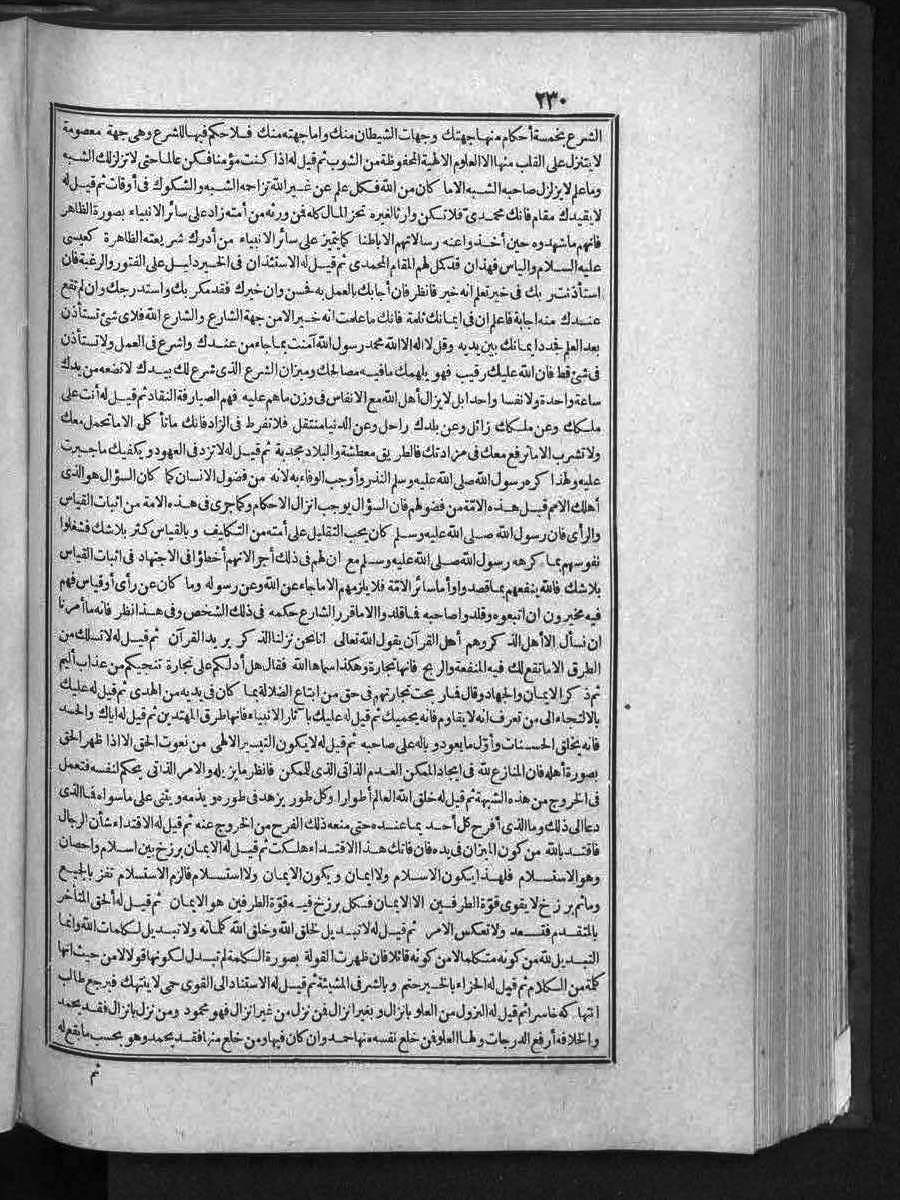 ٢٣٠
الشرع بخمسة أحكام منها جهتك وجهات الشيطان منك وأما جهته منك فلا حكم فيها للشرع وهى جهة معصومة
لا يتنزل على القلب منها الا العلوم الالهية المحفوظة من الشوب ثم قيل له اذا كنت مؤمنا فكن عالما حتى لا تزلزلك الشبه
وما علم لا يزلزل صاحبه الشبه الا ما كان من الله فكل علم عن غير الله تزاحه الشبه والشكوك فى أوقات ثم قيل له
لا يقيدك مقام فانك محمدىّ فلا تكن وارثا لغيره تحز المال كله فن ورثه من أمته زاد على سائر الانبياء بصورة الظاهر
فانهم ما شهدوه حين أخذوا عنه رسالاتهم الا باطنا كما يتميز على سائر الانبياء من أدرك شريعته الظاهرة كعيسى
عليه السلام والياس فهذان قد كمل لهم المقام المحمدى ثم قيل له الاستئذان فى الخير دليل على الفتور والرغبة فان
استأذنت ربك فى خير تعلم انه خير فانظر فان أجابك بالعمل به فحسن وان خيرك فقد مكر بك واستدرجك وان لم تقع
عندك منه اجابة فاعلم ان فى ايمانك ثلمة فانك ما علمت انه خير الا من جهة الشارع والشارع الله فلاى شئ تستأذن
بعد العلم فجدد ايمانك بين يديه وقل لا اله الا الله محمد رسول الله آمنت بما جاء من عندك واشرع فى العمل ولا تستأذن
فى شئ قط فان الله عليك رقيب فهو يلهمك ما فيه مصالحك وميزان الشرع الذى شرع لك بيدك لا تضعه من يدك
ساعة واحدة ولا نفسا واحدا بل لا يزال أهل الله مع الانفاس فى وزن ما هم عليه فهم الصيارفة النقاد ثم قيل له أنت على
ملكك وعن ملكك زائل وعن بلدك راحل وعن الدنيا منتقل فلا تفرط فى الزاد فانك ما تأ كل الا ما تحمل معك
ولا تشرب الا ما ترفع معك فى مزادتك فالطريق معطشة والبلاد مجدبة ثم قيل له لا تزد فى العهود و يكفيك ما جبرت
عليه ولهذا كره رسول الله صلى الله عليه وسلم النذر وأوجب الوفاء به لانه من فضول الانسان كما كان السؤال هو الذى
أهلك الامم قبل هذه الامّة من فضولهم فان السؤال يوجب انزال الاحكام وكما جرى فى هذه الامة من اثبات القياس
والرأى فان رسول الله صلى الله عليه وسلم كان يحب التقليل على أمته من التكليف و بالقياس كثر بلا شك فشغلوا
نفوسهم بما كرهه رسول الله صلى الله عليه وسلم مع ان لهم فى ذلك أجرا لانهم أخطؤا فى الاجتهاد فى اثبات القياس
بلا شك فالله ينفعهم بما قصدوا وأما سائر الامّة فلا يلزمهم الا ما جاء عن الله وعن رسوله وما كان عن رأى أو قياس فهم
فيه مخيرون ان اتبعوه وقلدوا صاحبه فما قلدوا الا ما قرر الشارع حكمه فى ذلك الشخص وفى هذا نظر فانه ما أمرنا
ان نسأل الا أهل الذكر وهم أهل القرآن يقول الله تعالى انا نحن نزلنا الذكر يريد القرآن ثم قيل له لا تسلك من
الطرق الا ما تقع لك فيه المنفعة والربح فانها تجارة وهكذا سماها الله فقال هل أدلكم على تجارة تنجيكم من عذاب أليم
ثم ذكر الايمان والجهاد وقال فما ربحت تجارتهم فى حق من ابتاع الضلالة بما كان فى يديه من الهدى ثم قيل له عليك
بالالتجاء الى من تعرف انه لا يقاوم فانه يحميك ثم قيل له عليك با ثار الانبياء فانها طرق المهتدين ثم قيل له اياك والحسد
فانه يحلق الحسنات وأوّل ما يعود وباله على صاحبه ثم قيل له لا يكون التيسير الالهى من نعوت الحق الا اذا ظهر الحق
بصورة أهله فان المنازع لله فى ايجاد الممكن العدم الذاتى الذى للممكن فانظر ما يزيله والامر الذاتى يحكم لنفسه فتعمل
فى الخروج من هذه الشبهة ثم قيل له خلق الله العالم أطوارا وكل طور يزهد فى طوره ويذمه ويثنى على ما سواه فما الذى
دعا الى ذلك وما الذى أفرح كل أحد بما عنده حتى منعه ذلك الفرح من الخروج عنه ثم قيل له الاقتداء شأن الرجال
فاقتد بالله من كون الميزان فى يده فان فاتك هذا الاقتداء هلكت ثم قيل له الايمان برزخ بين اسلام واحسان
وهو الاستسلام فلهذا يكون الاسلام ولا ايمان و يكون الايمان ولا استسلام فالزم الاستسلام تفز بالجميع
وما ثم برزخ لا يقوى قوّة الطرفين الا الايمان فكل برزخ فيه قوّة الطرفين هو الايمان ثم قيل له ألحق المتأخر
بالمتقدم فتسعد ولا تعكس الامر ثم قيل له لا تبديل لخلق الله وخلق الله كلماته ولا تبديل لكلمات الله وانما
التبديل لله من كونه متكلما لا من كونه قائلا فان ظهرت القولة بصورة الكلمة لم تبدل لكونها قولا لا من حيث انها
كلمة من الكلام ثم قيل له الجزاء بالخير حتم و بالشر فى المشيئة ثم قيل له الاستناد الى القوى حمى لا ينتهك فيرجع طالب
انتهاكه خاسرا ثم قيل له النزول من العلو بانزال و بغير انزال فن نزل من غير انزال فهو محمود ومن نزل بانزال فقد يحمد
والخلافة أرفع الدرجات ولها العلو فمن خلع نفسه منها حمد وان كان فيها ومن خلع منها فقد يحمد وهو بحسب ما يقع له
ثم